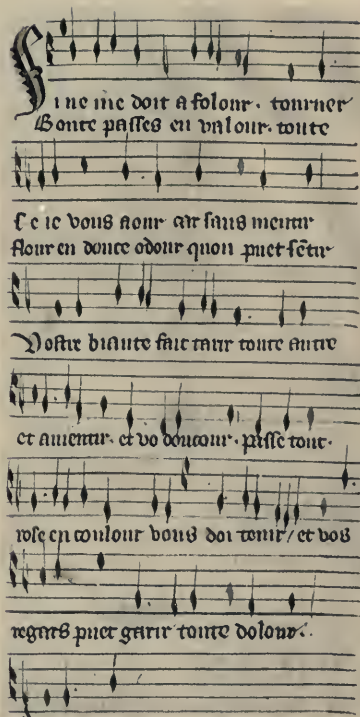 Sine me doit a folour. tourner
Bonte passes en valour. toute
Se ie vous aour car sans mentir
flour en douce odour quon puet sētir
Vostre biaute fait tarir toute autre
et anientir. et vo doucour. passe tout.
rose en coulour vous doi tenir / et vos
regars puet garir toute dolour.